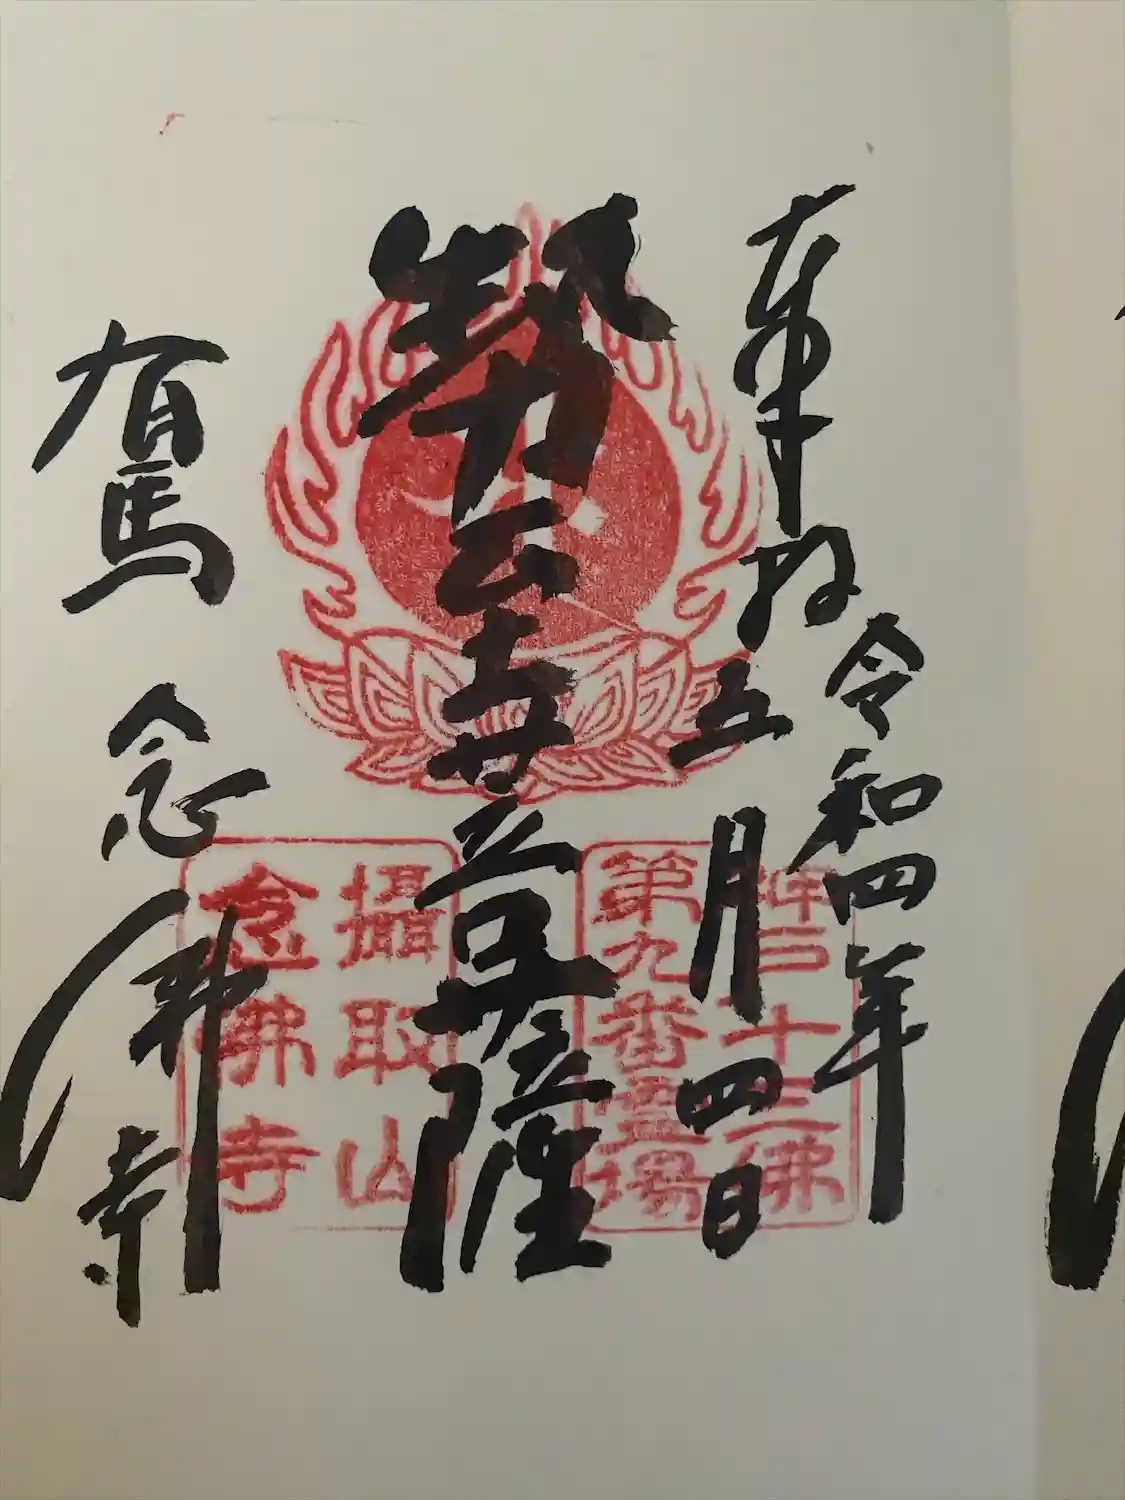 奉拝
令和四年
五月四日
勢至菩薩
有馬
念佛寺
神戸十三佛
第九番霊場
攝取山
念佛寺